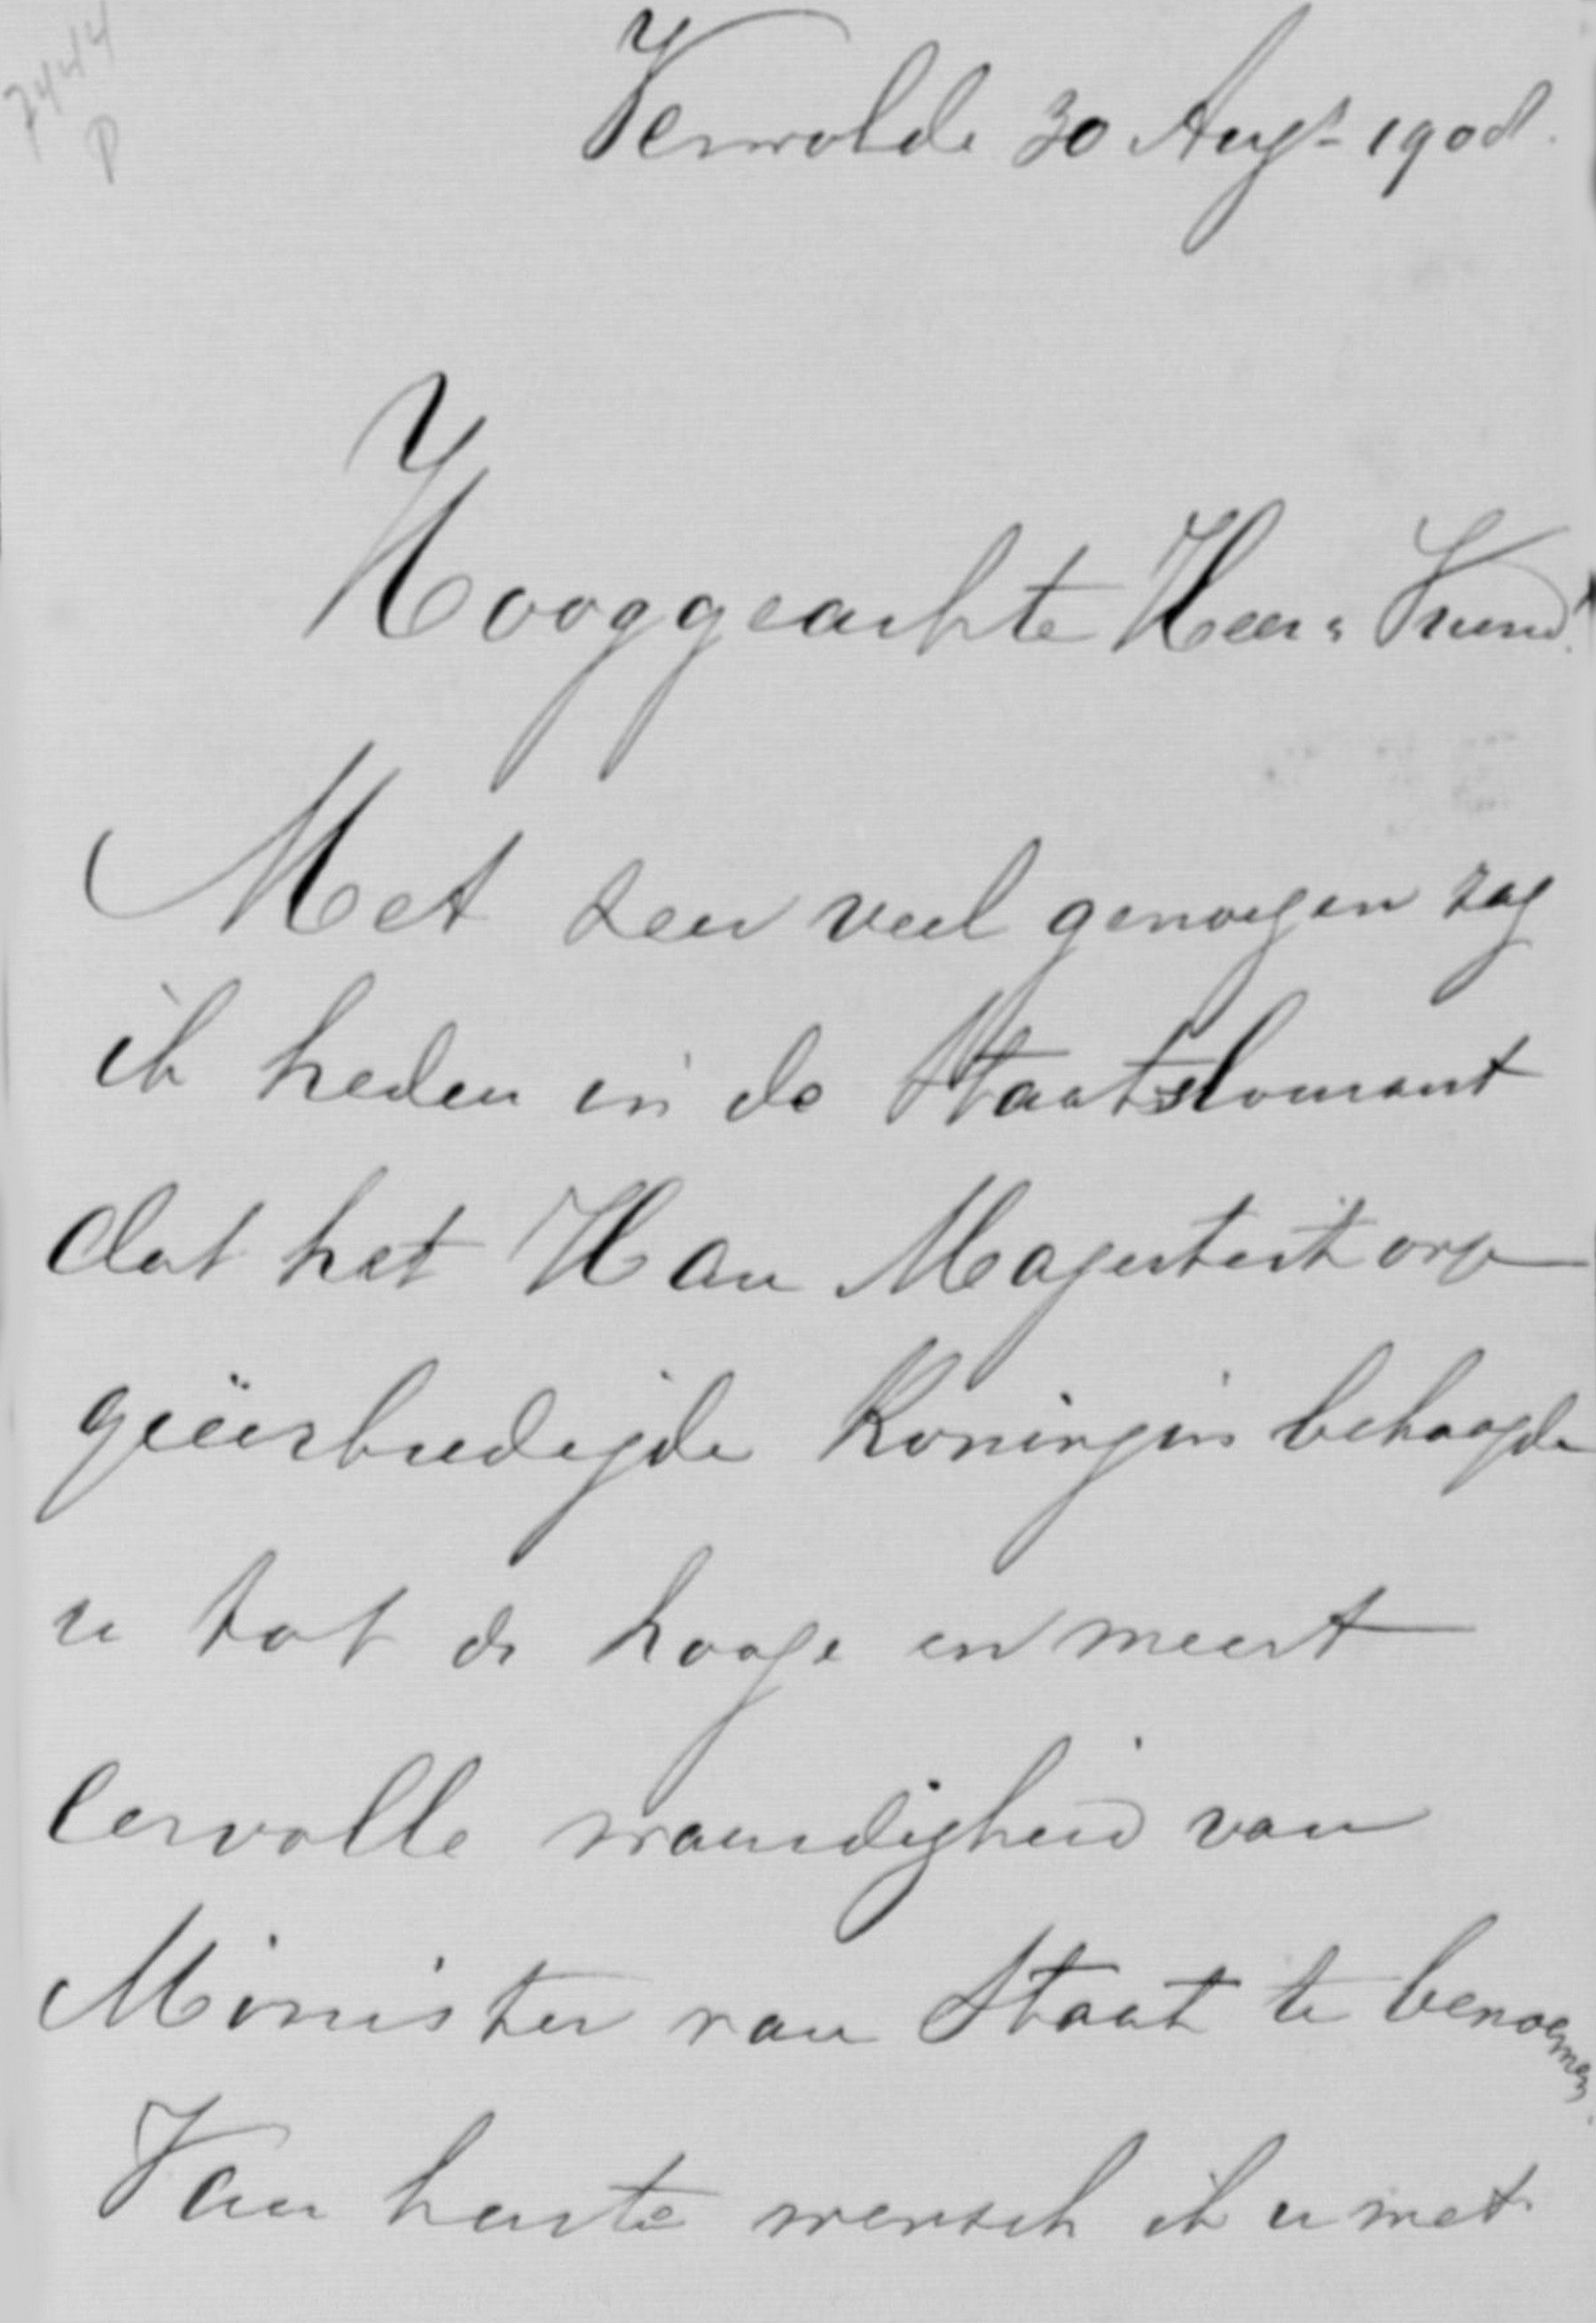 7444
P
Verwolde 30 Augt 1908.
Hooggeachte Heer & Vriend!
Met zeer veel genoegen zag
ik heden in de Staatskourant
dat het Hare Majesteit onze
geëerbiedigde Koningin behaagde
u tot de hooge en meest
eervolle waardigheid van
Minister van Staat te benoemen.
Van harte wensch ik u met